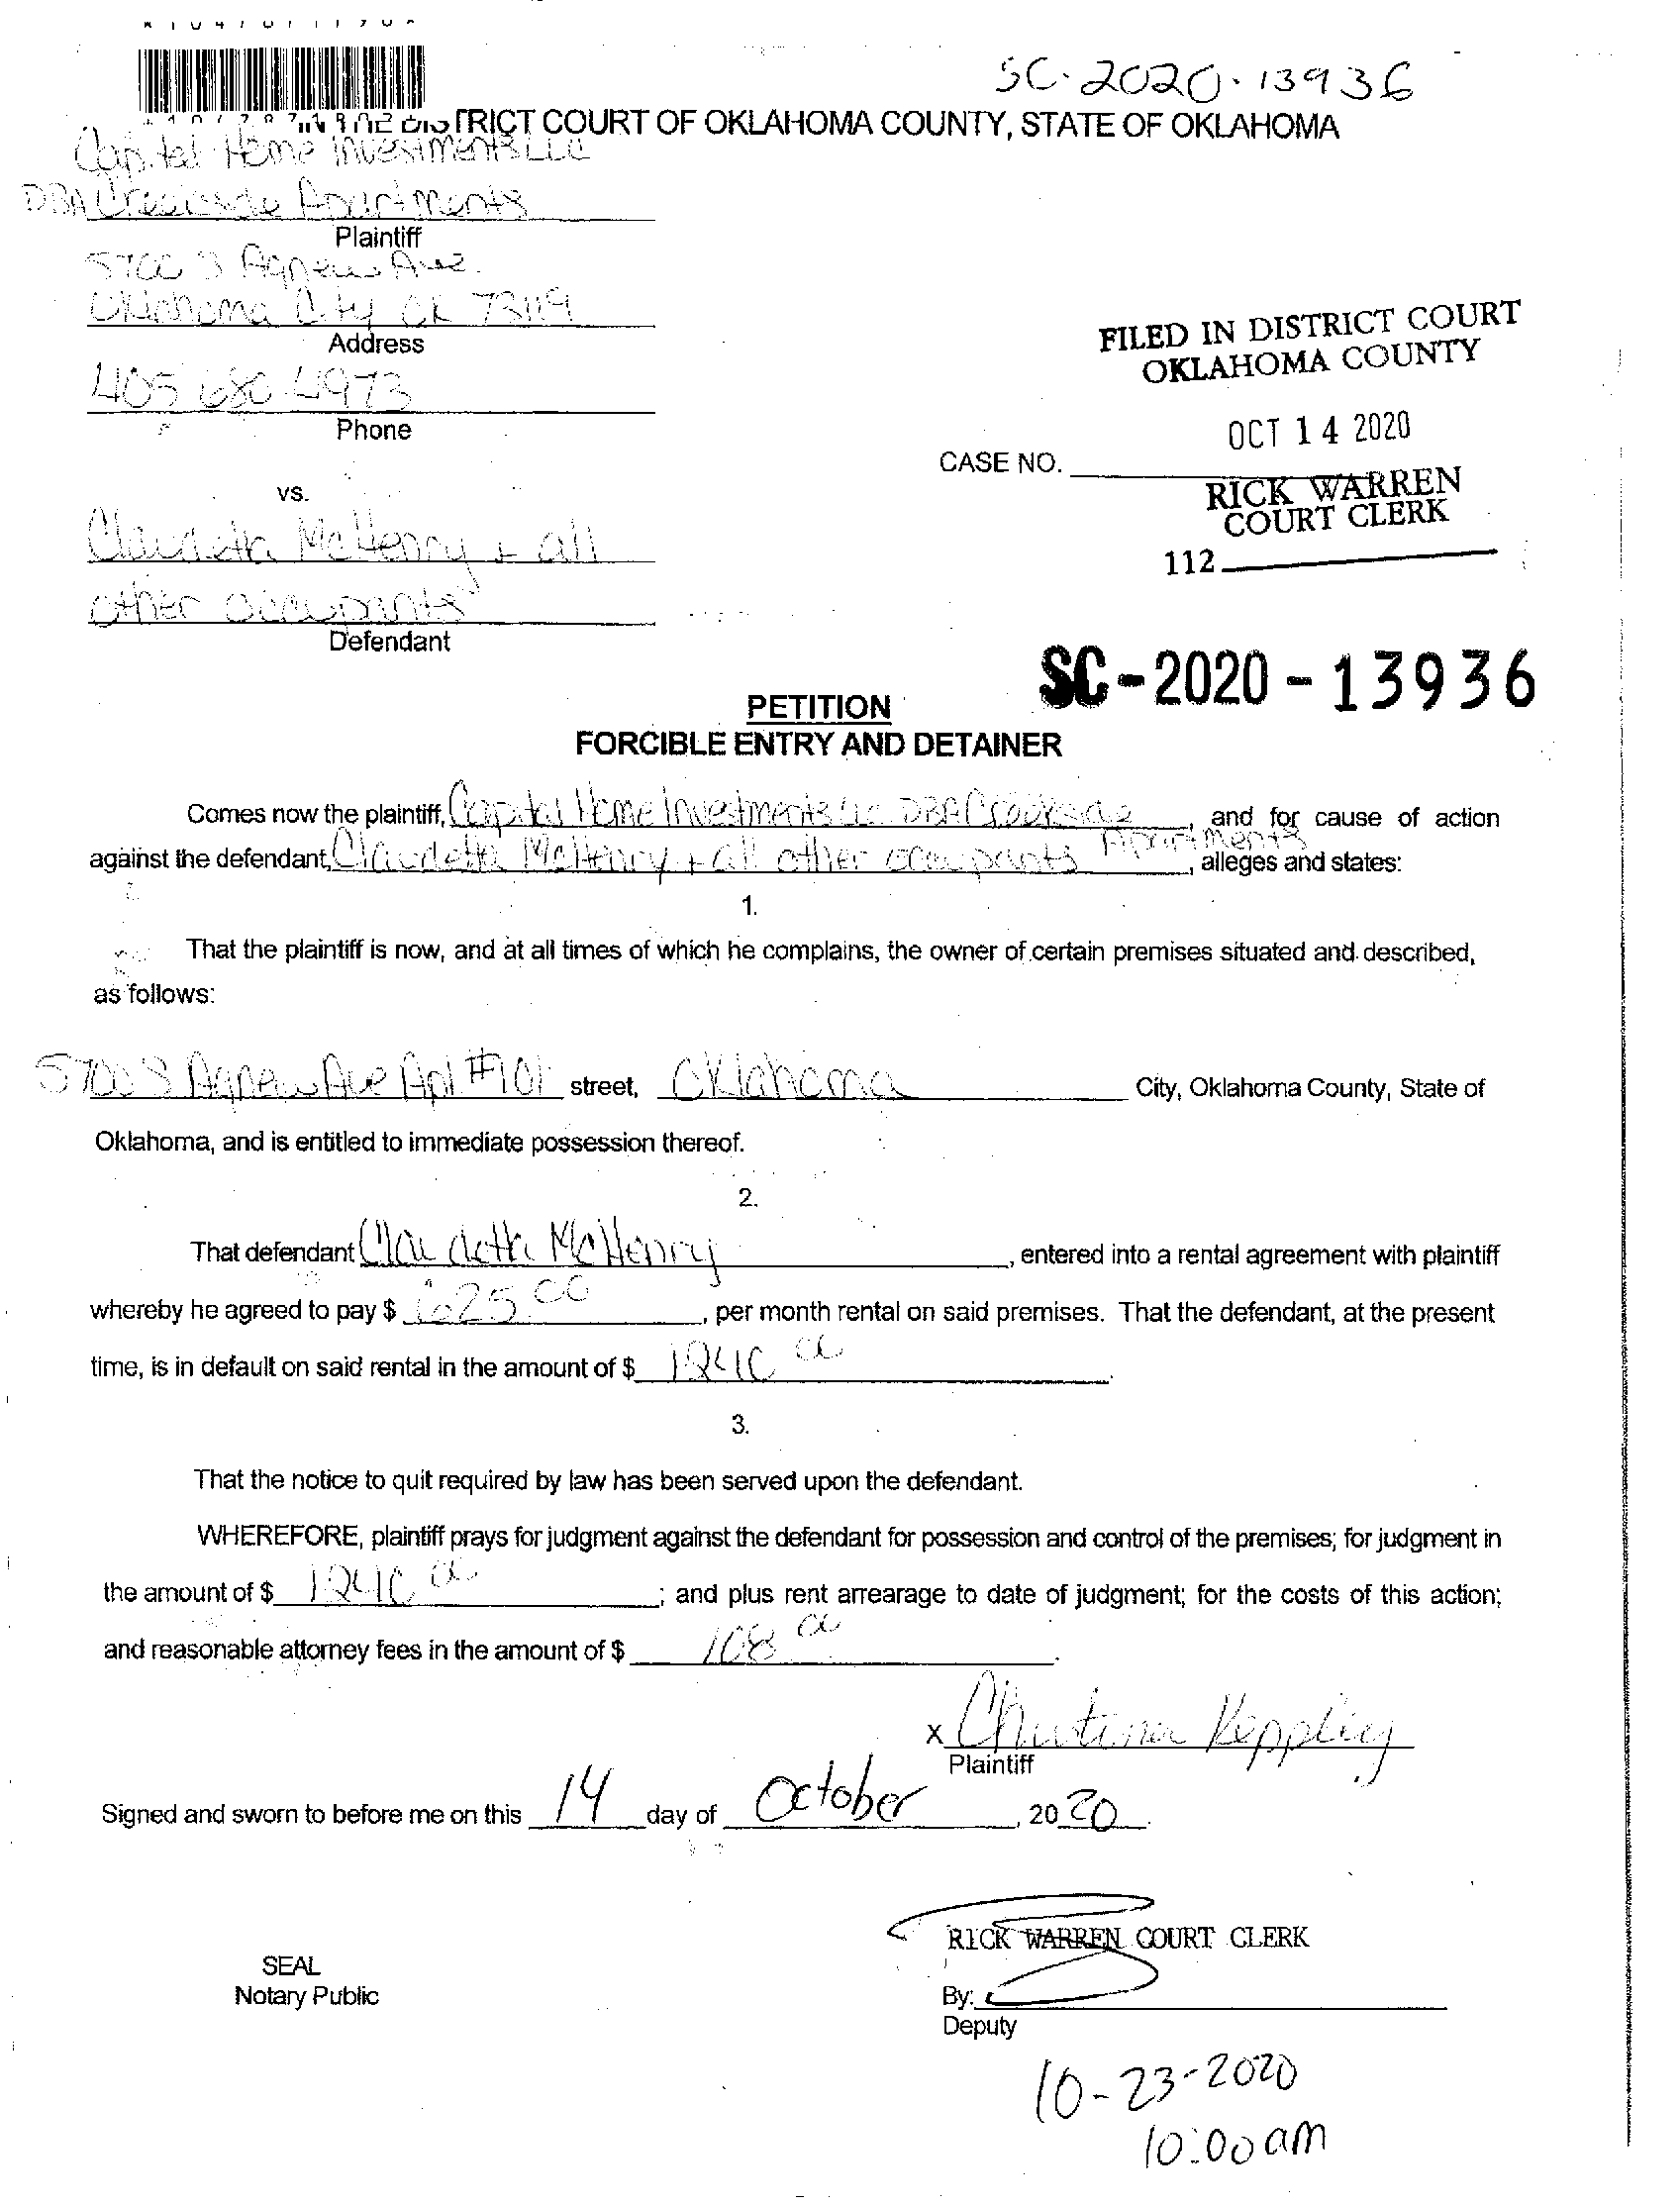 SC-2020-13936
IN THE DISTRICT COURT OF OKLAHOMA COUNTY, STATE OF OKLAHOMA
Capital Home Investments LLC
DBA Creekside Apartments
Plaintiff
5700 S Agnew Ave.
Oklahoma City OK 73119
Address
405 680 4973
Phone
FILED IN DISTRICT COURT
OKLAHOMA COUNTY
OCT 14 2020
CASE NO.
RICK WARREN
COURT CLERK
112
vs.
Claudetta McHenry + all
other occupants
Defendant
SC-2020-13936
PETITION
FORCIBLE ENTRY AND DETAINER
Comes now the plaintiff, Capital Home Investments LLC DBA Creekside Apartments, and for cause of action
against the defendant, Claudetta McHenry + all other occupants, alleges and states:
1.
That the plaintiff is now, and at all times of which he complains, the owner of certain premises situated and described,
as follows:
5700 S Agnew Ave Apt #101 street, Oklahoma City, Oklahoma County, State of
Oklahoma, and is entitled to immediate possession thereof.
2.
That defendant Claudetta McHenry, entered into a rental agreement with plaintiff
whereby he agreed to pay $ 625 00, per month rental on said premises. That the defendant, at the present
time, is in default on said rental in the amount of $ 1240 00.
3.
That the notice to quit required by law has been served upon the defendant.
WHEREFORE, plaintiff prays for judgment against the defendant for possession and control of the premises; for judgment in
the amount of $ 1240 00; and plus rent arrearage to date of judgment; for the costs of this action;
and reasonable attorney fees in the amount of $ 108 00.
x Christina Keppley
Plaintiff
Signed and sworn to before me on this 14 day of October, 2020.
RICK WARREN COURT CLERK
SEAL
Notary Public
By:
Deputy
10-23-2020
10:00am